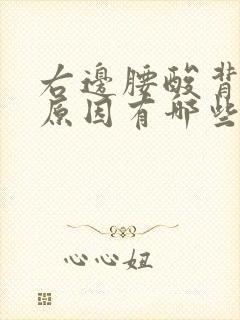 右邊腰酸背
原因有哪些
心心妞